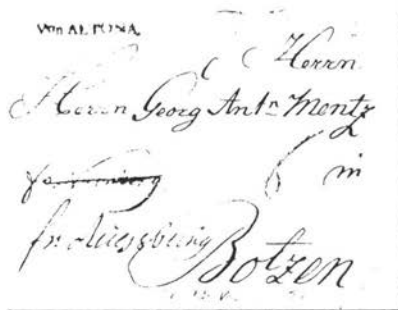 Von ALTONA.
Herrn
Herrn Georg Antn Mentz
in
fr Augsburg Botzen